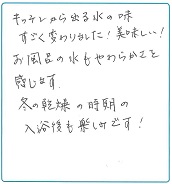 キッチンから出る水の味
すごく変わりました！美味しい！
お風呂の水もやわらかさを
感じます.
冬の乾燥の時期の
入浴後も楽しみです！